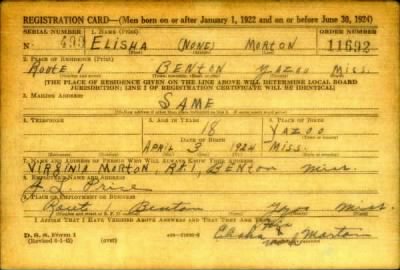 REGISTRATION CARD—(Men born on or after January 1, 1922 and on or before June 30, 1924)
SERIAL NUMBER 1. NAME (Print) ORDER NUMBER
N 499 ELISHA (NONE) MORTON 11692
2. PLACE OF RESIDENCE (Print)
ROUTE 1 BENTON YAZOO MISS.
[THE PLACE OF RESIDENCE GIVEN ON THE LINE ABOVE WILL DETERMINE LOCAL BOARD
JURISDICTION; LINE 2 OF REGISTRATION CERTIFICATE WILL BE IDENTICAL]
3. MAILING ADDRESS
SAME
4. TELEPHONE 5. AGE IN YEARS 6. PLACE OF BIRTH
18 YAZOO
DATE OF BIRTH
APRIL 3 1924 MISS.
7. NAME AND ADDRESS OF PERSON WHO WILL ALWAYS KNOW YOUR ADDRESS
VIRGINIA MORTON, RT. 1, BENTON MISS.
8. EMPLOYER'S NAME AND ADDRESS
Price
9. PLACE OF EMPLOYMENT OR BUSINESS
Route 1 Benton Miss.
I AFFIRM THAT I HAVE VERIFIED ABOVE ANSWERS AND THAT THEY ARE TRUE.
D. S. S. Form 1
(Revised 6-1-42) (over) Elisha Morton